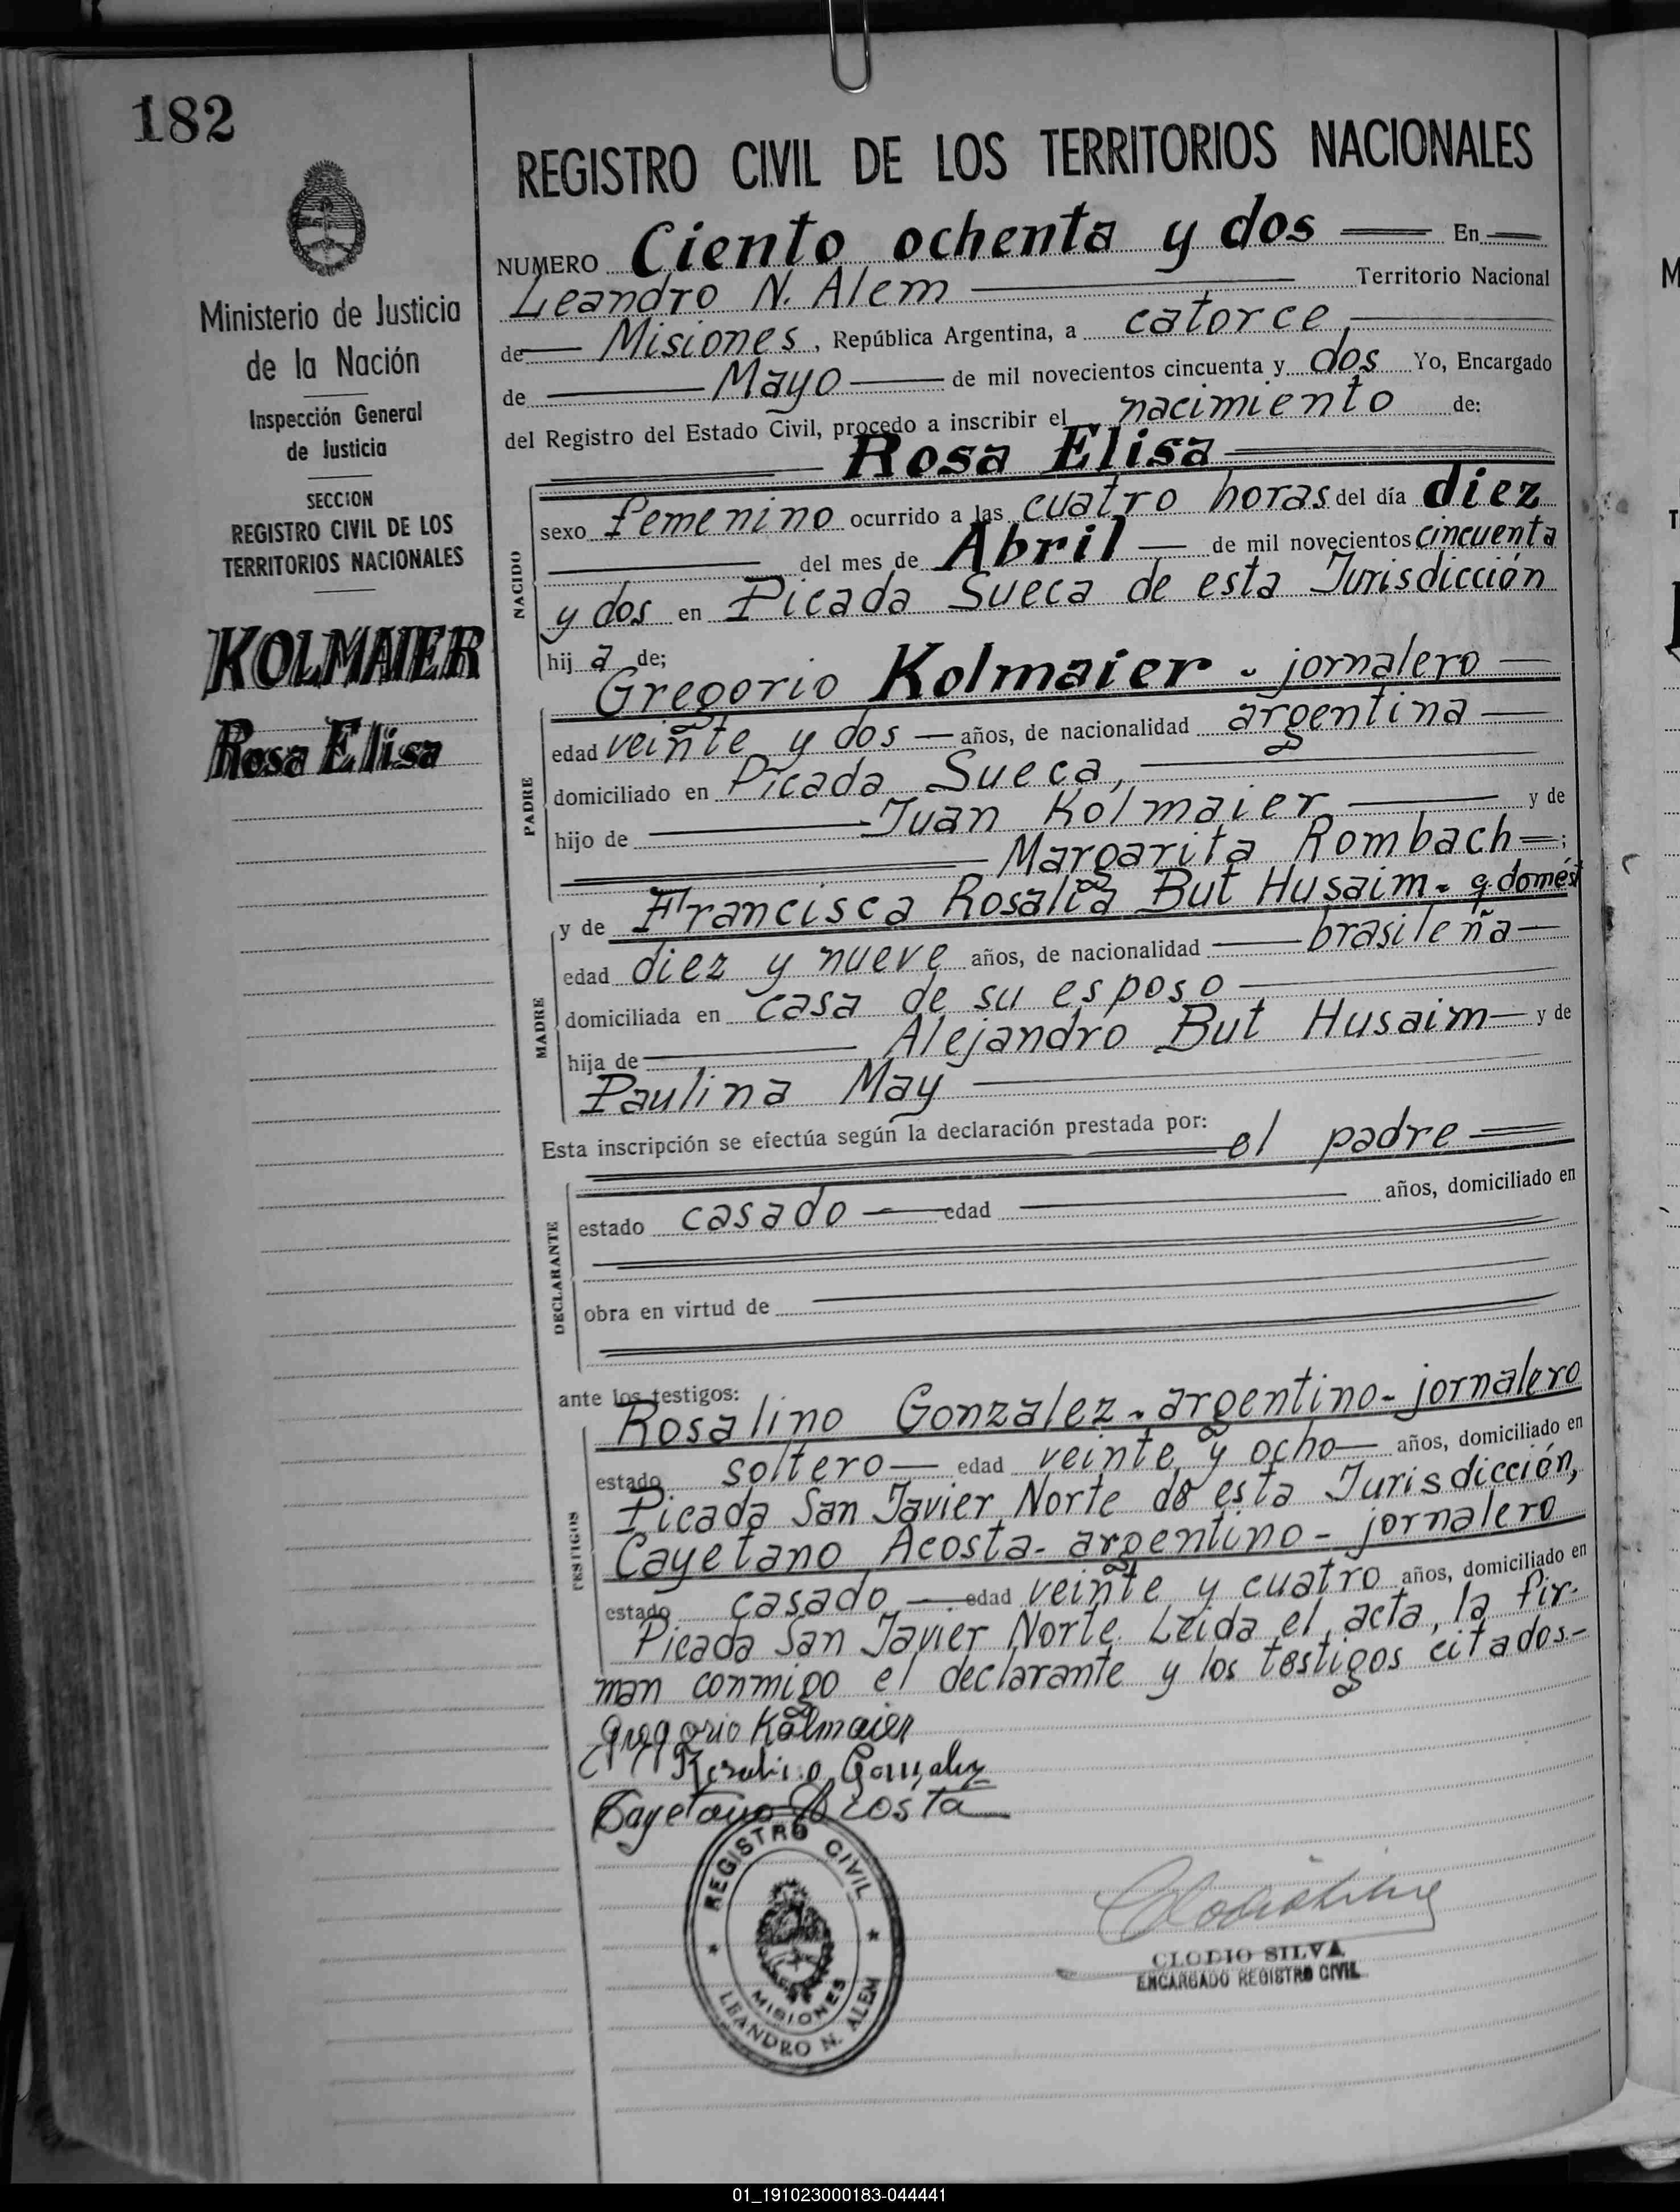 182
Ministerio de Justicia
de la Nación
Inspección General
de Justicia
SECCION
REGISTRO CIVIL DE LOS
TERRITORIOS NACIONALES
KOLMAIER
Rosa Elisa
REGISTRO CIVIL DE LOS TERRITORIOS NACIONALES
NUMERO Ciento ochenta y dos En
Leandro N. Alem Territorio Nacional
de Misiones, República Argentina, a catorce,
de Mayo de mil novecientos cincuenta y dos Yo, Encargado
del Registro del Estado Civil, procedo a inscribir el nacimiento de:
Rosa Elisa
NACIDO
sexo femenino ocurrido a las cuatro horas del día diez
del mes de Abril de mil novecientos cincuenta
y dos en Picada Sueca de esta Jurisdicción
hij a de;
PADRE
Gregorio Kolmaier - jornalero
edad veinte y dos años, de nacionalidad argentina
domiciliado en Picada Sueca,
hijo de Juan Kolmaier y de
Margarita Rombach ;
MADRE
y de Francisca Rosalia But Husaim - q. domést
edad diez y nueve años, de nacionalidad brasileña
domiciliada en casa de su esposo
hija de Alejandro But Husaim y de
Paulina May
Esta inscripción se efectúa según la declaración prestada por: el padre
DECLARANTE
estado casado edad años, domiciliado en
obra en virtud de
ante los testigos:
TESTIGOS
Rosalino Gonzalez - argentino - jornalero
estado soltero edad veinte y ocho años, domiciliado en
Picada San Javier Norte de esta Jurisdicción,
Cayetano Acosta - argentino - jornalero
estado casado edad veinte y cuatro años, domiciliado en
Picada San Javier Norte. Leida el acta, la fir-
man conmigo el declarante y los testigos citados.-
Gregorio Kolmaier
Rosalino Gonzalez
Cayetano Acosta
REGISTRO CIVIL
MISIONES
LEANDRO N. ALEM
CLODIO SILVA
ENCARGADO REGISTRO CIVIL
01_191023000183-044441